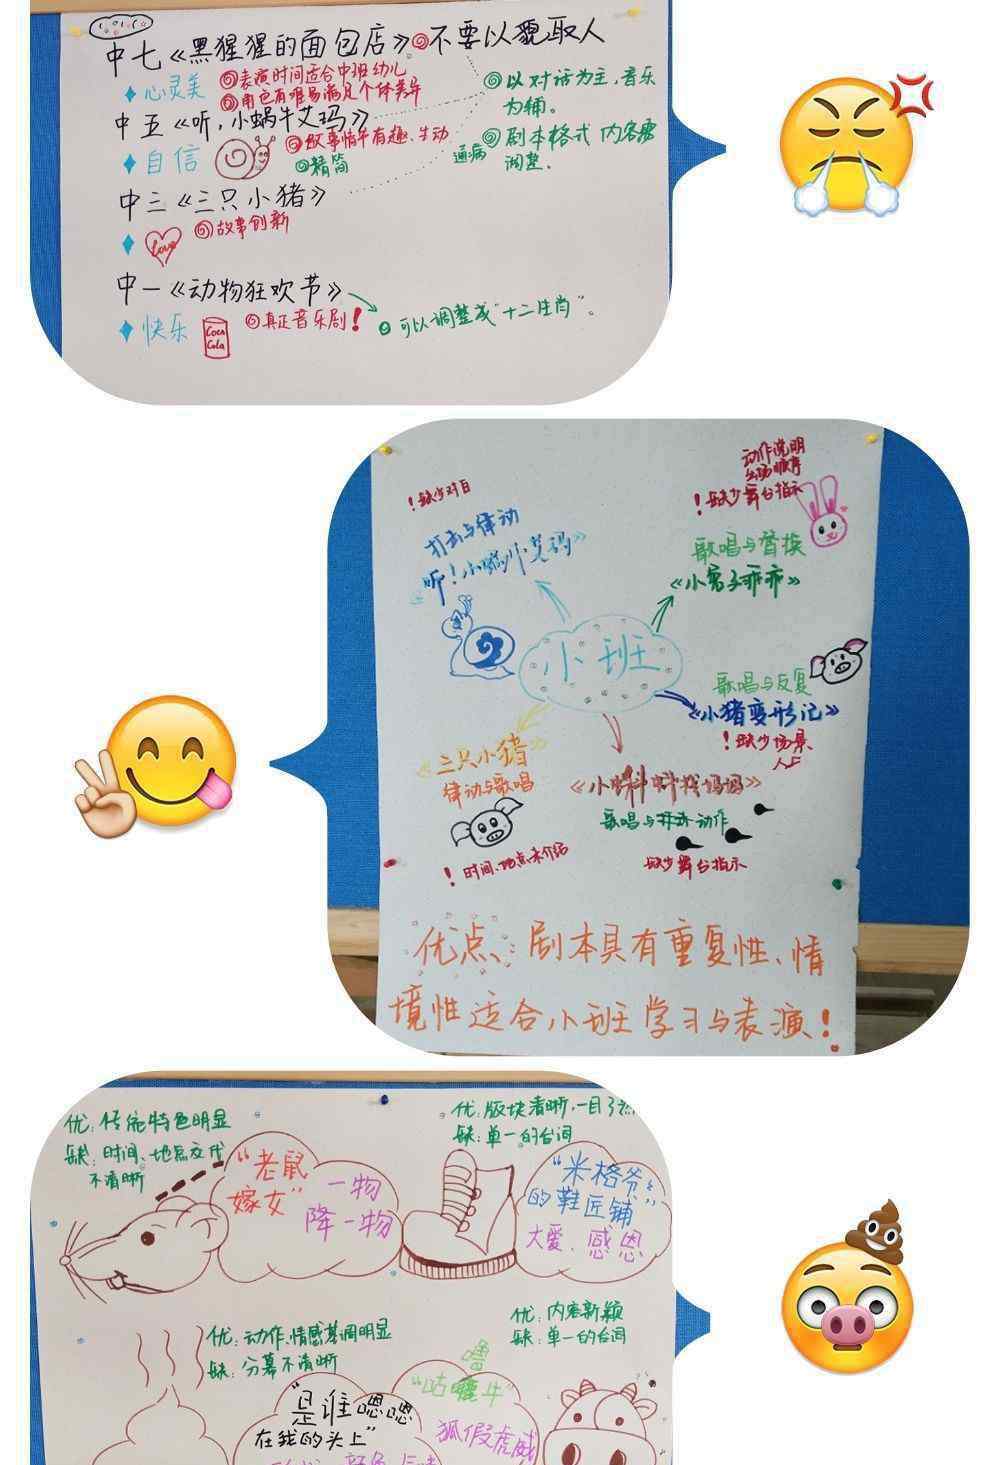 中七《黑猩猩的面包店》◎不要以貌取人
心灵美
◎表演时间适合中班幼儿
◎角色有难易满足个体差异
◎以对话为主，音乐
为辅。
中五《听，小蜗牛艾玛》
自信
◎故事情节有趣、生动
◎精简
通病
◎剧本格式 内容需
调整。
中三《三只小猪》
Love
◎故事创新
中一《动物狂欢节》
快乐
Coca
Cola
◎真正音乐剧！
可以调整成“十二生肖”。
！缺少对白
打击与律动
听！小蜗牛艾玛》
动作说明
出场顺序
！缺少舞台指示
歌唱与替换
《小兔子乖乖》
小班
歌唱与反复
《小猪变形记》
！缺少场景、
《三只小猪》
律动与歌唱
！时间、地点未介绍
《小蝌蚪找妈妈》
歌唱与 动作
缺少舞台指示
优点：剧本具有重复性、情
境性适合小班学习与表演！
优：传统特色明显
缺：时间、地点交代
不清晰
“老鼠
嫁女”
一物
降一物
优：版块清晰，一目了然
缺：单一的台词
“米格爷爷
的鞋匠铺”
大爱、感恩
优：动作、情感基调明显
缺：分幕不清晰
“是谁嗯嗯
在我的头上”
优：内容新颖
缺：单一的台词
噜
“咕噜牛”
狐假虎威